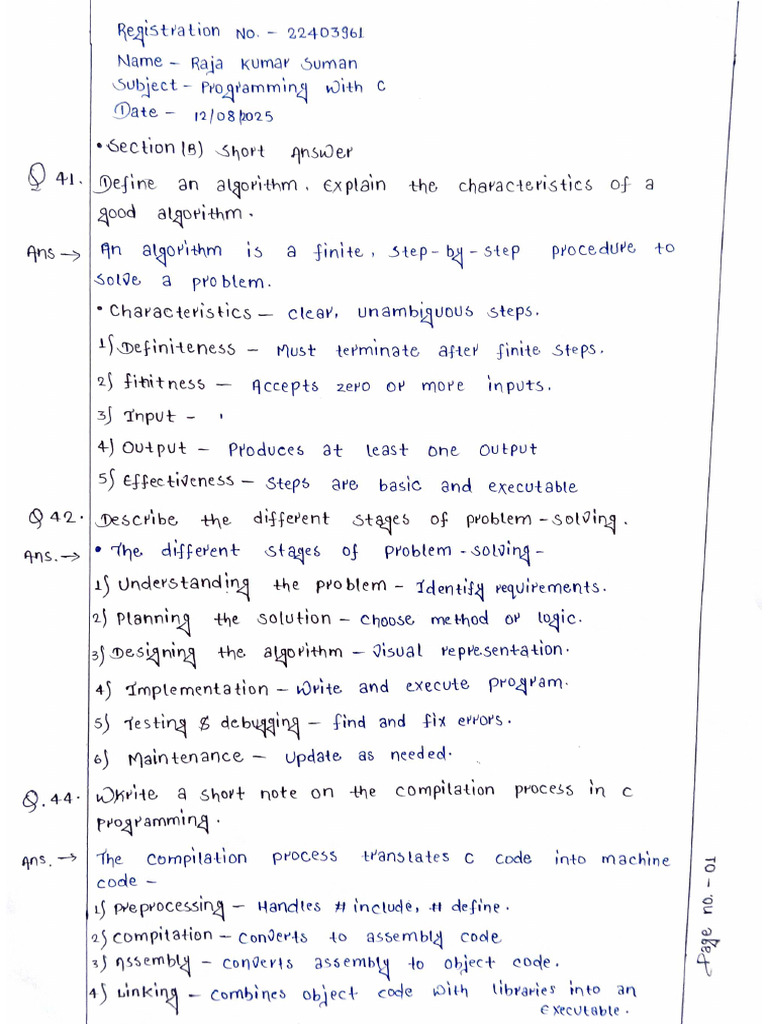 Registration No. - 22403961
Name - Raja Kumar Suman
Subject - Programming with C
Date - 12/08/2025
• Section (B) Short Answer
Q 41. Define an algorithm. Explain the characteristics of a
good algorithm.
Ans → An algorithm is a finite, step-by-step procedure to
solve a problem.
• Characteristics - clear, unambiguous steps.
1) Definiteness - Must terminate after finite steps.
2) finitness - Accepts zero or more inputs.
3) Input -
4) Output - Produces at least one output
5) Effectiveness - Steps are basic and executable
Q 42. Describe the different stages of problem-solving.
Ans. → • The different stages of problem-solving-
1) Understanding the problem - Identify requirements.
2) Planning the solution - choose method or logic.
3) Designing the algorithm - Visual representation.
4) Implementation - Write and execute program.
5) Testing & debugging - find and fix errors.
6) Maintenance - Update as needed.
Q. 44. Wkrite a short note on the compilation process in c
programming.
Ans. → The compilation process translates c code into machine
code -
1) preprocessing - Handles # include, # define.
2) compitation - converts to assembly code
3) Assembly - converts assembly to object code.
4) Linking - combines object code with libraries into an
executable.
Page no. - 01